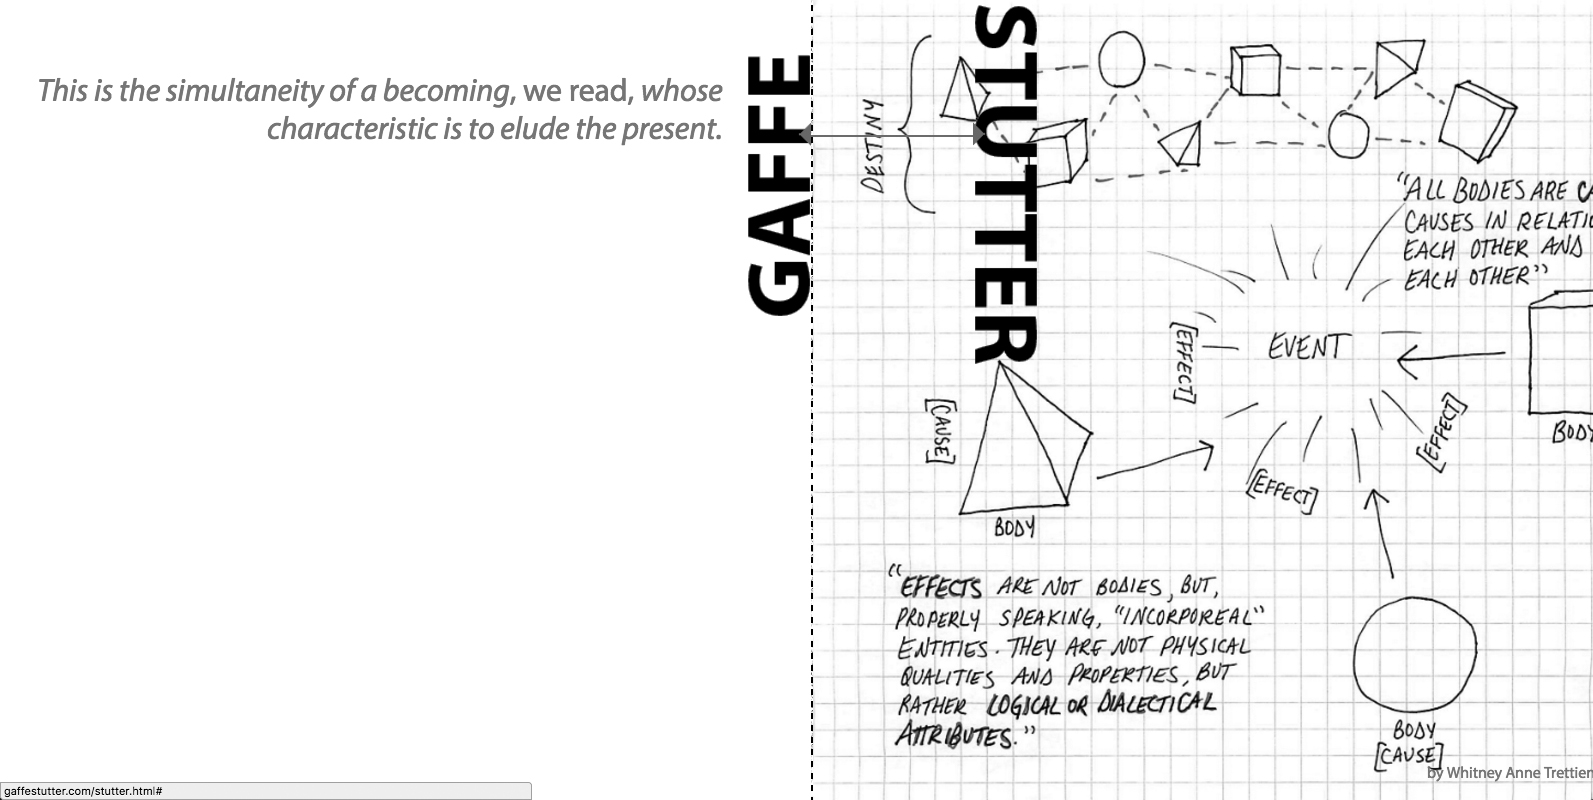 This is the simultaneity of a becoming, we read, whose
characteristic is to elude the present.
GAFFE
STUTTER
DESTINY
"ALL BODIES ARE
CAUSES IN
EACH OTHER AND
EACH OTHER"
EVENT
[EFFECT]
[EFFECT]
[EFFECT]
[CAUSE]
BODY
BODY
"EFFECTS ARE NOT BODIES, BUT,
PROPERLY SPEAKING, "INCORPOREAL"
ENTITIES. THEY ARE NOT PHYSICAL
QUALITIES AND PROPERTIES, BUT
RATHER LOGICAL OR DIALECTICAL
ATTRIBUTES."
BODY
[CAUSE]
by Whitney Anne Trettien
gaffestutter.com/stutter.html#